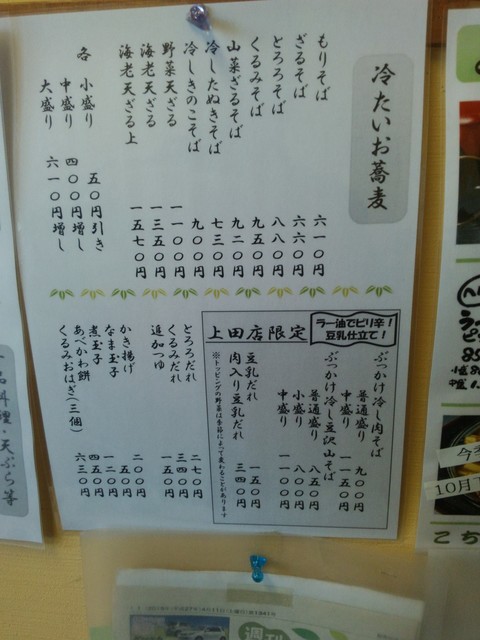 冷たいお蕎麦
もりそば 六一〇円
ざるそば 六六〇円
とろろそば 八八〇円
くるみそば 九五〇円
山菜ざるそば 九二〇円
冷したぬきそば 七三〇円
冷しきのこそば 九〇〇円
野菜天ざる 一一〇〇円
海老天ざる 一三五〇円
海老天ざる上 一五七〇円
各 小盛り 五〇円引き
中盛り 四〇〇円増し
大盛り 六一〇円増し
上田店限定
ラー油でピリ辛!
豆乳仕立て!
ぶっかけ冷し肉そば
普通盛り 九〇〇円
中盛り 一一五〇円
ぶっかけ冷し豆沢山そば
普通盛り 八五〇円
小盛り 八〇〇円
中盛り 一一〇〇円
豆乳だれ 一五〇円
肉入り豆乳だれ 三四〇円
※トッピングの野菜は季節によって変わることがあります
とろろだれ 二七〇円
くるみだれ 三四〇円
追加つゆ 一五〇円
かき揚げ 二〇〇円
なま玉子 五〇円
煮玉子 一二〇円
あべかわ餅 四五〇円
くるみおはぎ(三個) 六三〇円
一品料理・天ぷら等
10月
こち
週刊